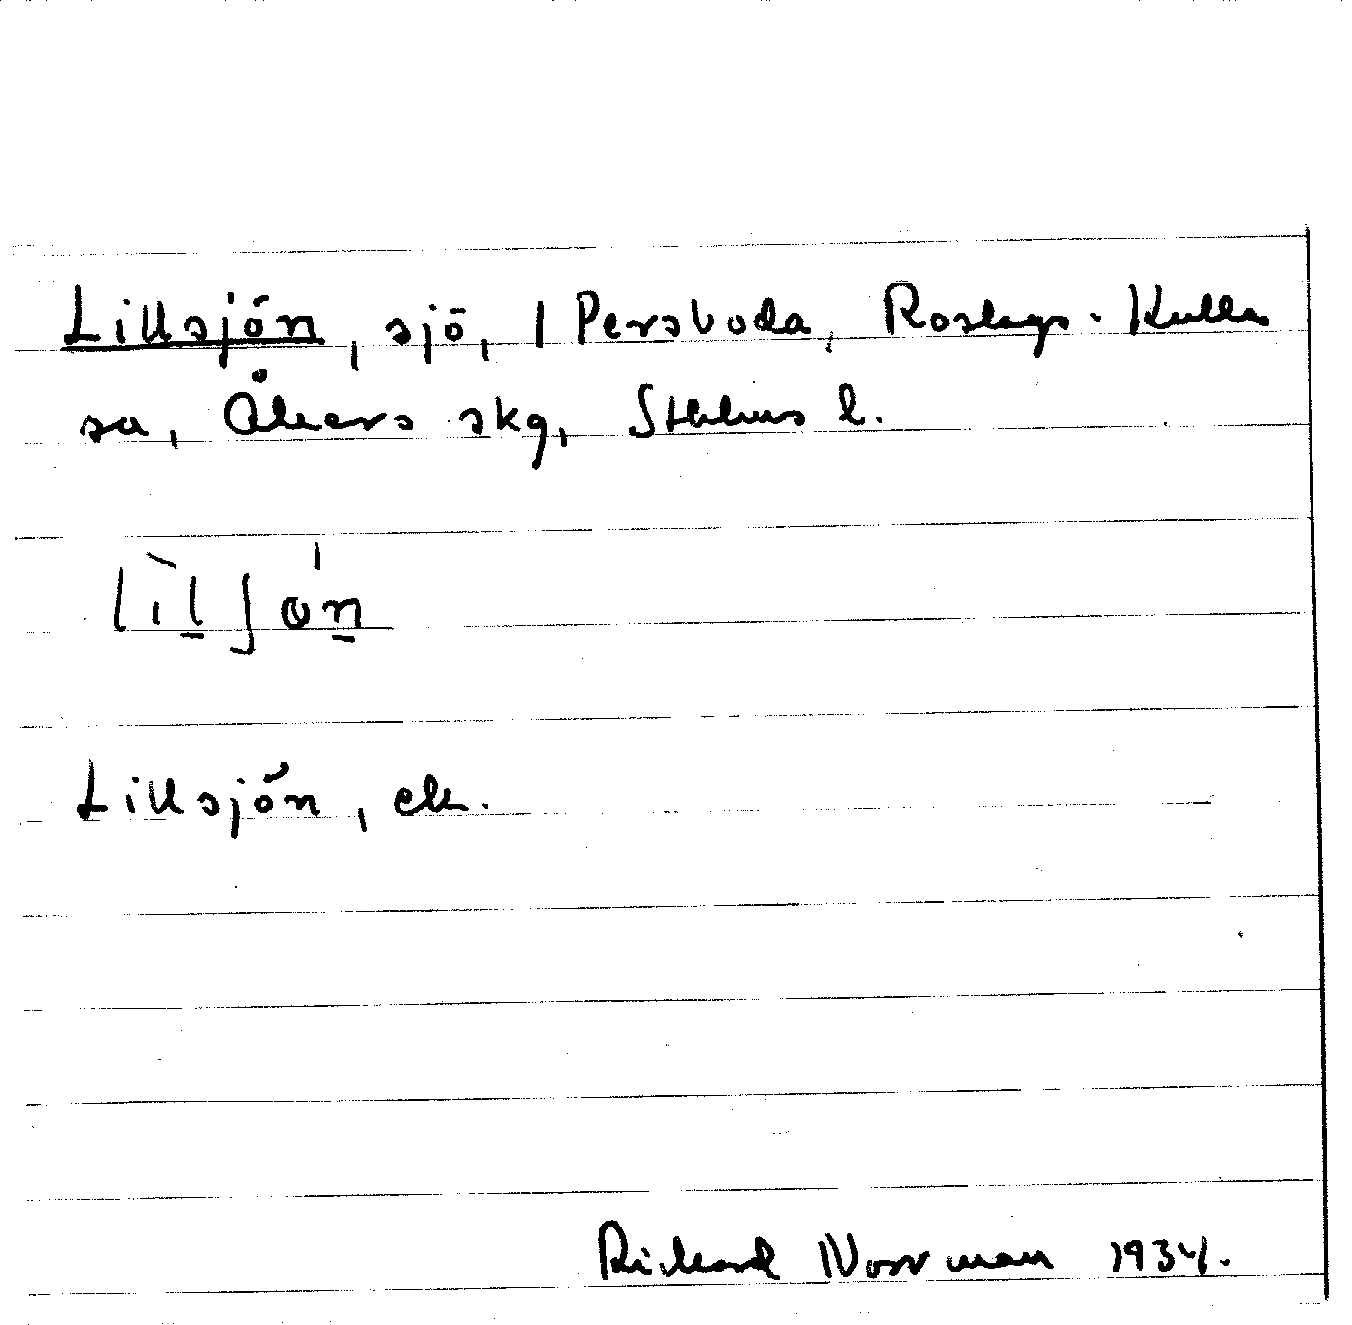 Lillsjön, sjö, / Persboda, Roslags-Kulla
sn, Åkers skg, Sthlms l.
Lillsjön, ek.
Rickard Norrman 1934.